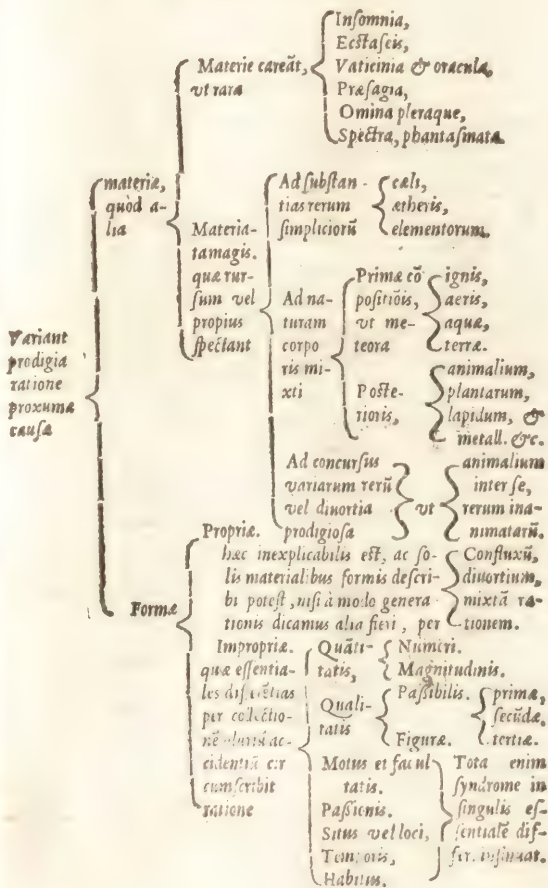 Variant
prodigia
ratione
proxumæ
causæ
materiæ,
quòd a-
lia
Materie careāt,
vt rara
Inſomnia,
Ecſtaſeis,
Vaticinia & oracula,
Præſagia,
Omina pleraque,
Spectra, phantaſmata
Materia-
ta magis.
quæ rur-
ſum vel
propius
ſpectant
Ad ſubſtan-
tias rerum
ſimpliciorū
cæli,
ætheris,
elementorum.
Ad na-
turam
corpo
ris mi-
xti
Primæ cō
poſitiōis,
vt me-
teora
ignis,
aeris,
aquæ,
terræ.
Poſte-
rioris,
animalium,
plantarum,
lapidum, &
metall. &c.
Ad concurſus
variarum rerū
vel diuortia
prodigioſa
vt
animalium
inter ſe,
rerum ina-
nimatarū.
Formæ
Propriæ.
hæc inexplicabilis eſt, ac ſo-
lis materialibus formis deſcri-
bi poteſt, niſi à modo genera
tionis dicamus alia fieri, per
Confluxū,
diuortium,
mixtā ra-
tionem.
Impropriæ.
quæ eſſentia-
les differētias
per collectio-
nē plurium ac-
cidentiū cir
cumſcribit
ratione
Quāti-
tatis,
Numeri.
Magnitudinis.
Quali-
tatis
Paßibilis.
primæ,
ſecūdæ,
tertiæ.
Figuræ.
Motus et facul
tatis.
Paßionis.
Situs vel loci,
Temporis,
Habitus.
Tota enim
ſyndrome in
ſingulis eſ-
ſentialē dif-
fer. inſinuat.